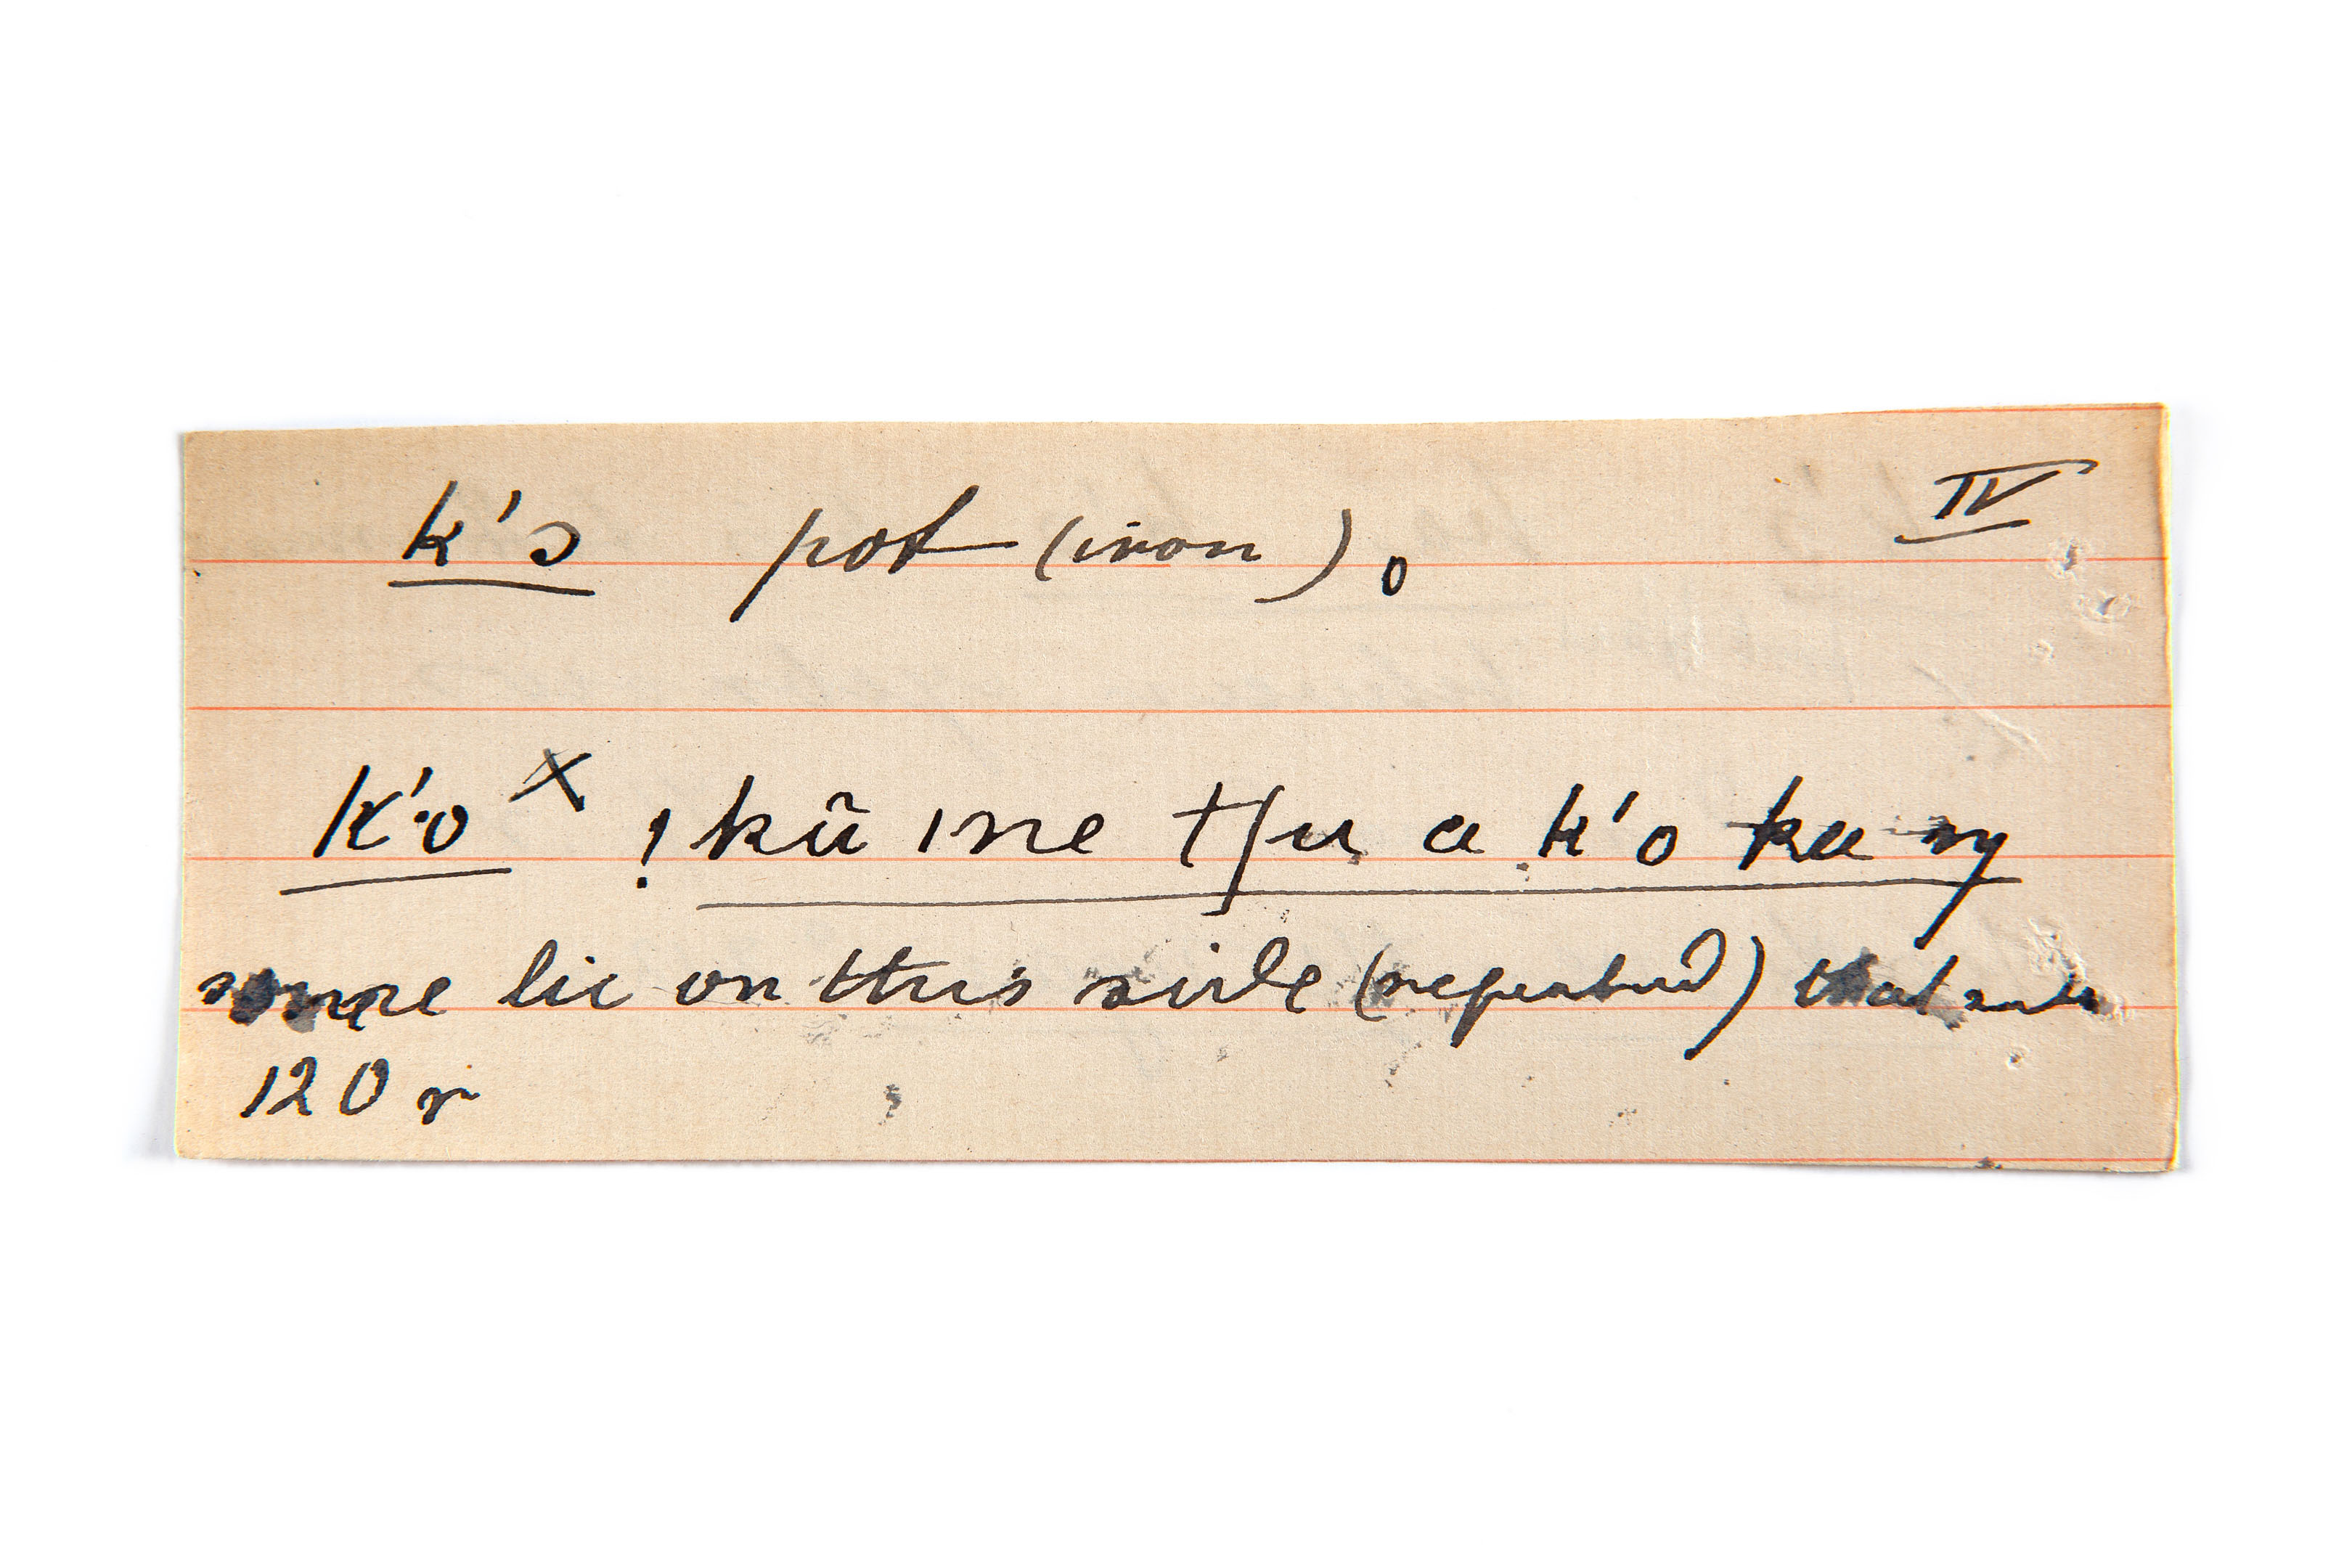 k'ɔ pot (iron). IV
K'o × !kũ ne tʃu a k'o ka ŋ
some lie on this side (repeated) that side
120 r